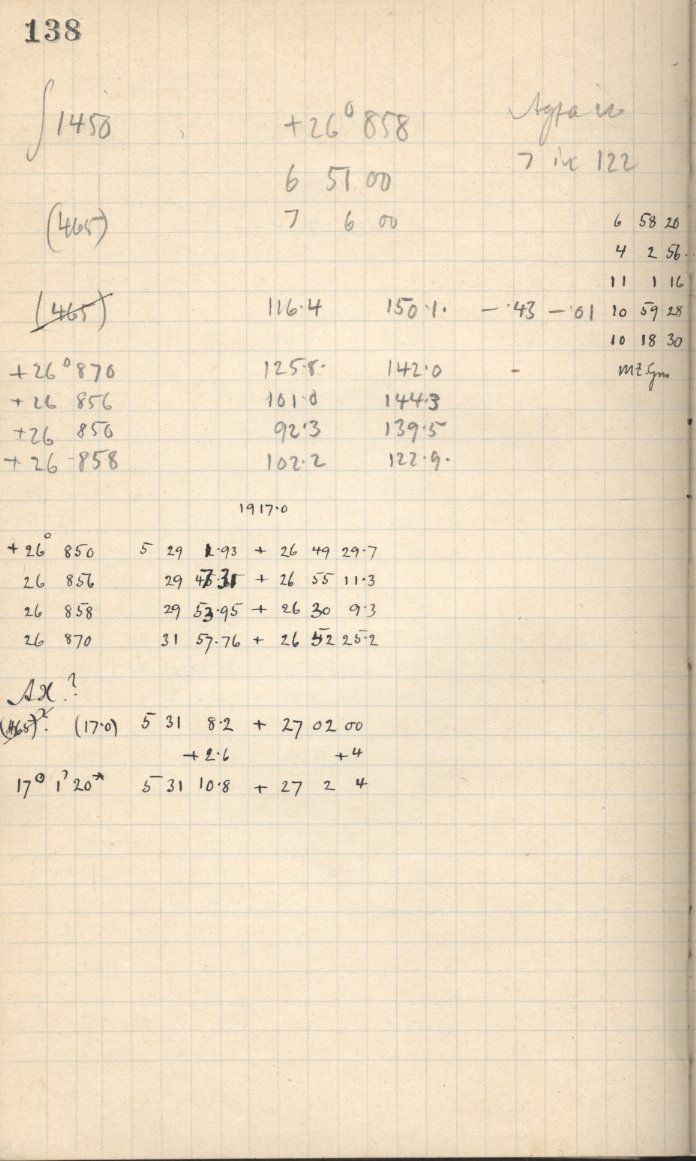 138
∫ 1450 +26° 858
6 51 00
7 6 00
(465)
7 122
6 58 20
4 2 56
11 1 16
10 59 28
10 18 30
M.Z. Gm.
(465) 116.4 150.1. - .43 - .01
+26° 870 125.8. 142.0 -
+26 856 101.0 144.3
+26 850 92.3 139.5
+26 858 102.2 122.9.
1917.0
+26° 850 5 29 1.93 + 26 49 29.7
26 856 29 + 26 55 11.3
26 858 29 53.95 + 26 30 9.3
26 870 31 57.76 + 26 52 25.2
AX ?
(465)?. (17.0) 5 31 8.2 + 27 02 00
+2.6 +4
5 31 10.8 + 27 2 4